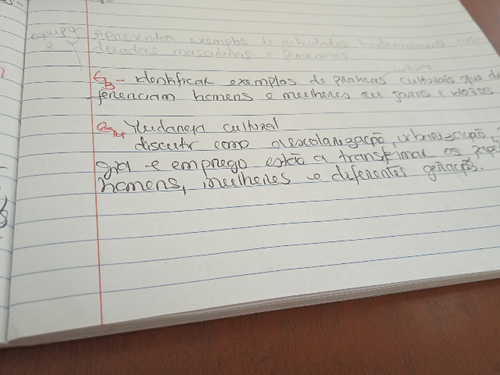 Grupo Apresentar exemplos de actividades tradicionalmente
2 masculinos e femininos
G3- identificar exemplos de práticas culturais que di
ferenciam homens e mulheres ou jovens e idosos
G4 Mudança cultural
discutir como a escolarização, urbanização,
gia e emprego estão a transformar os
homens, mulheres e diferentes gerações.